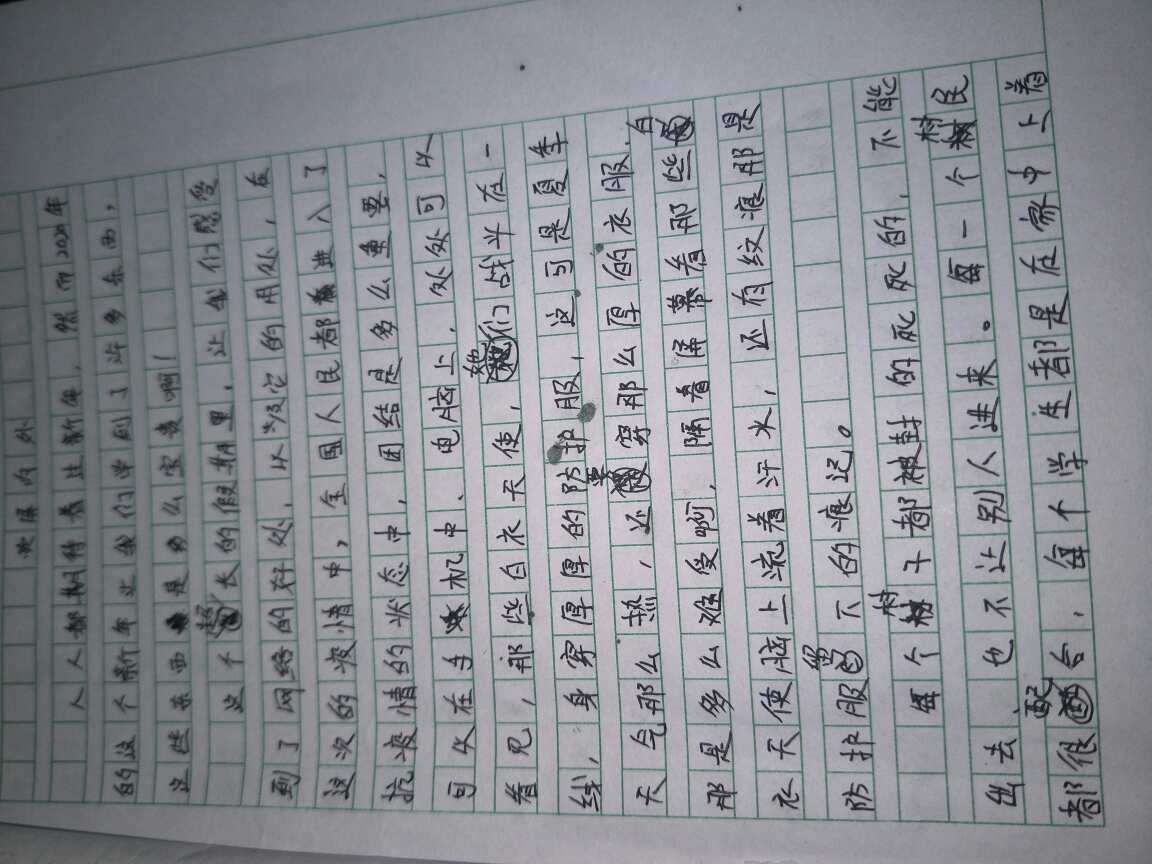 屏内外
人人都期待着过新年，然而2020年
的这个新年让我们学到了许多东西，
这些东西是多么宝贵啊！
这个超长的假期里，让我们感受
到了网络的好处，以及它的用处，在
这次的疫情中，全国人民都进入了
抗疫情的状态中，团结是多么重要，
可以在手机中、电脑上，处处可以
看见，那些白衣天使，她们战斗在一
线，身穿厚厚的防护服，这可是夏季
天气那么热，还要穿那么厚的衣服，
那是多么难受啊，隔着屏幕看那些白
衣天使脸上流着汗水，还有纹痕那是
防护服留下的痕记。
每个村子都被封的死死的，不能
出去，也不让别人进来。每一个村民
都很配合，每个学生都是在家中上着